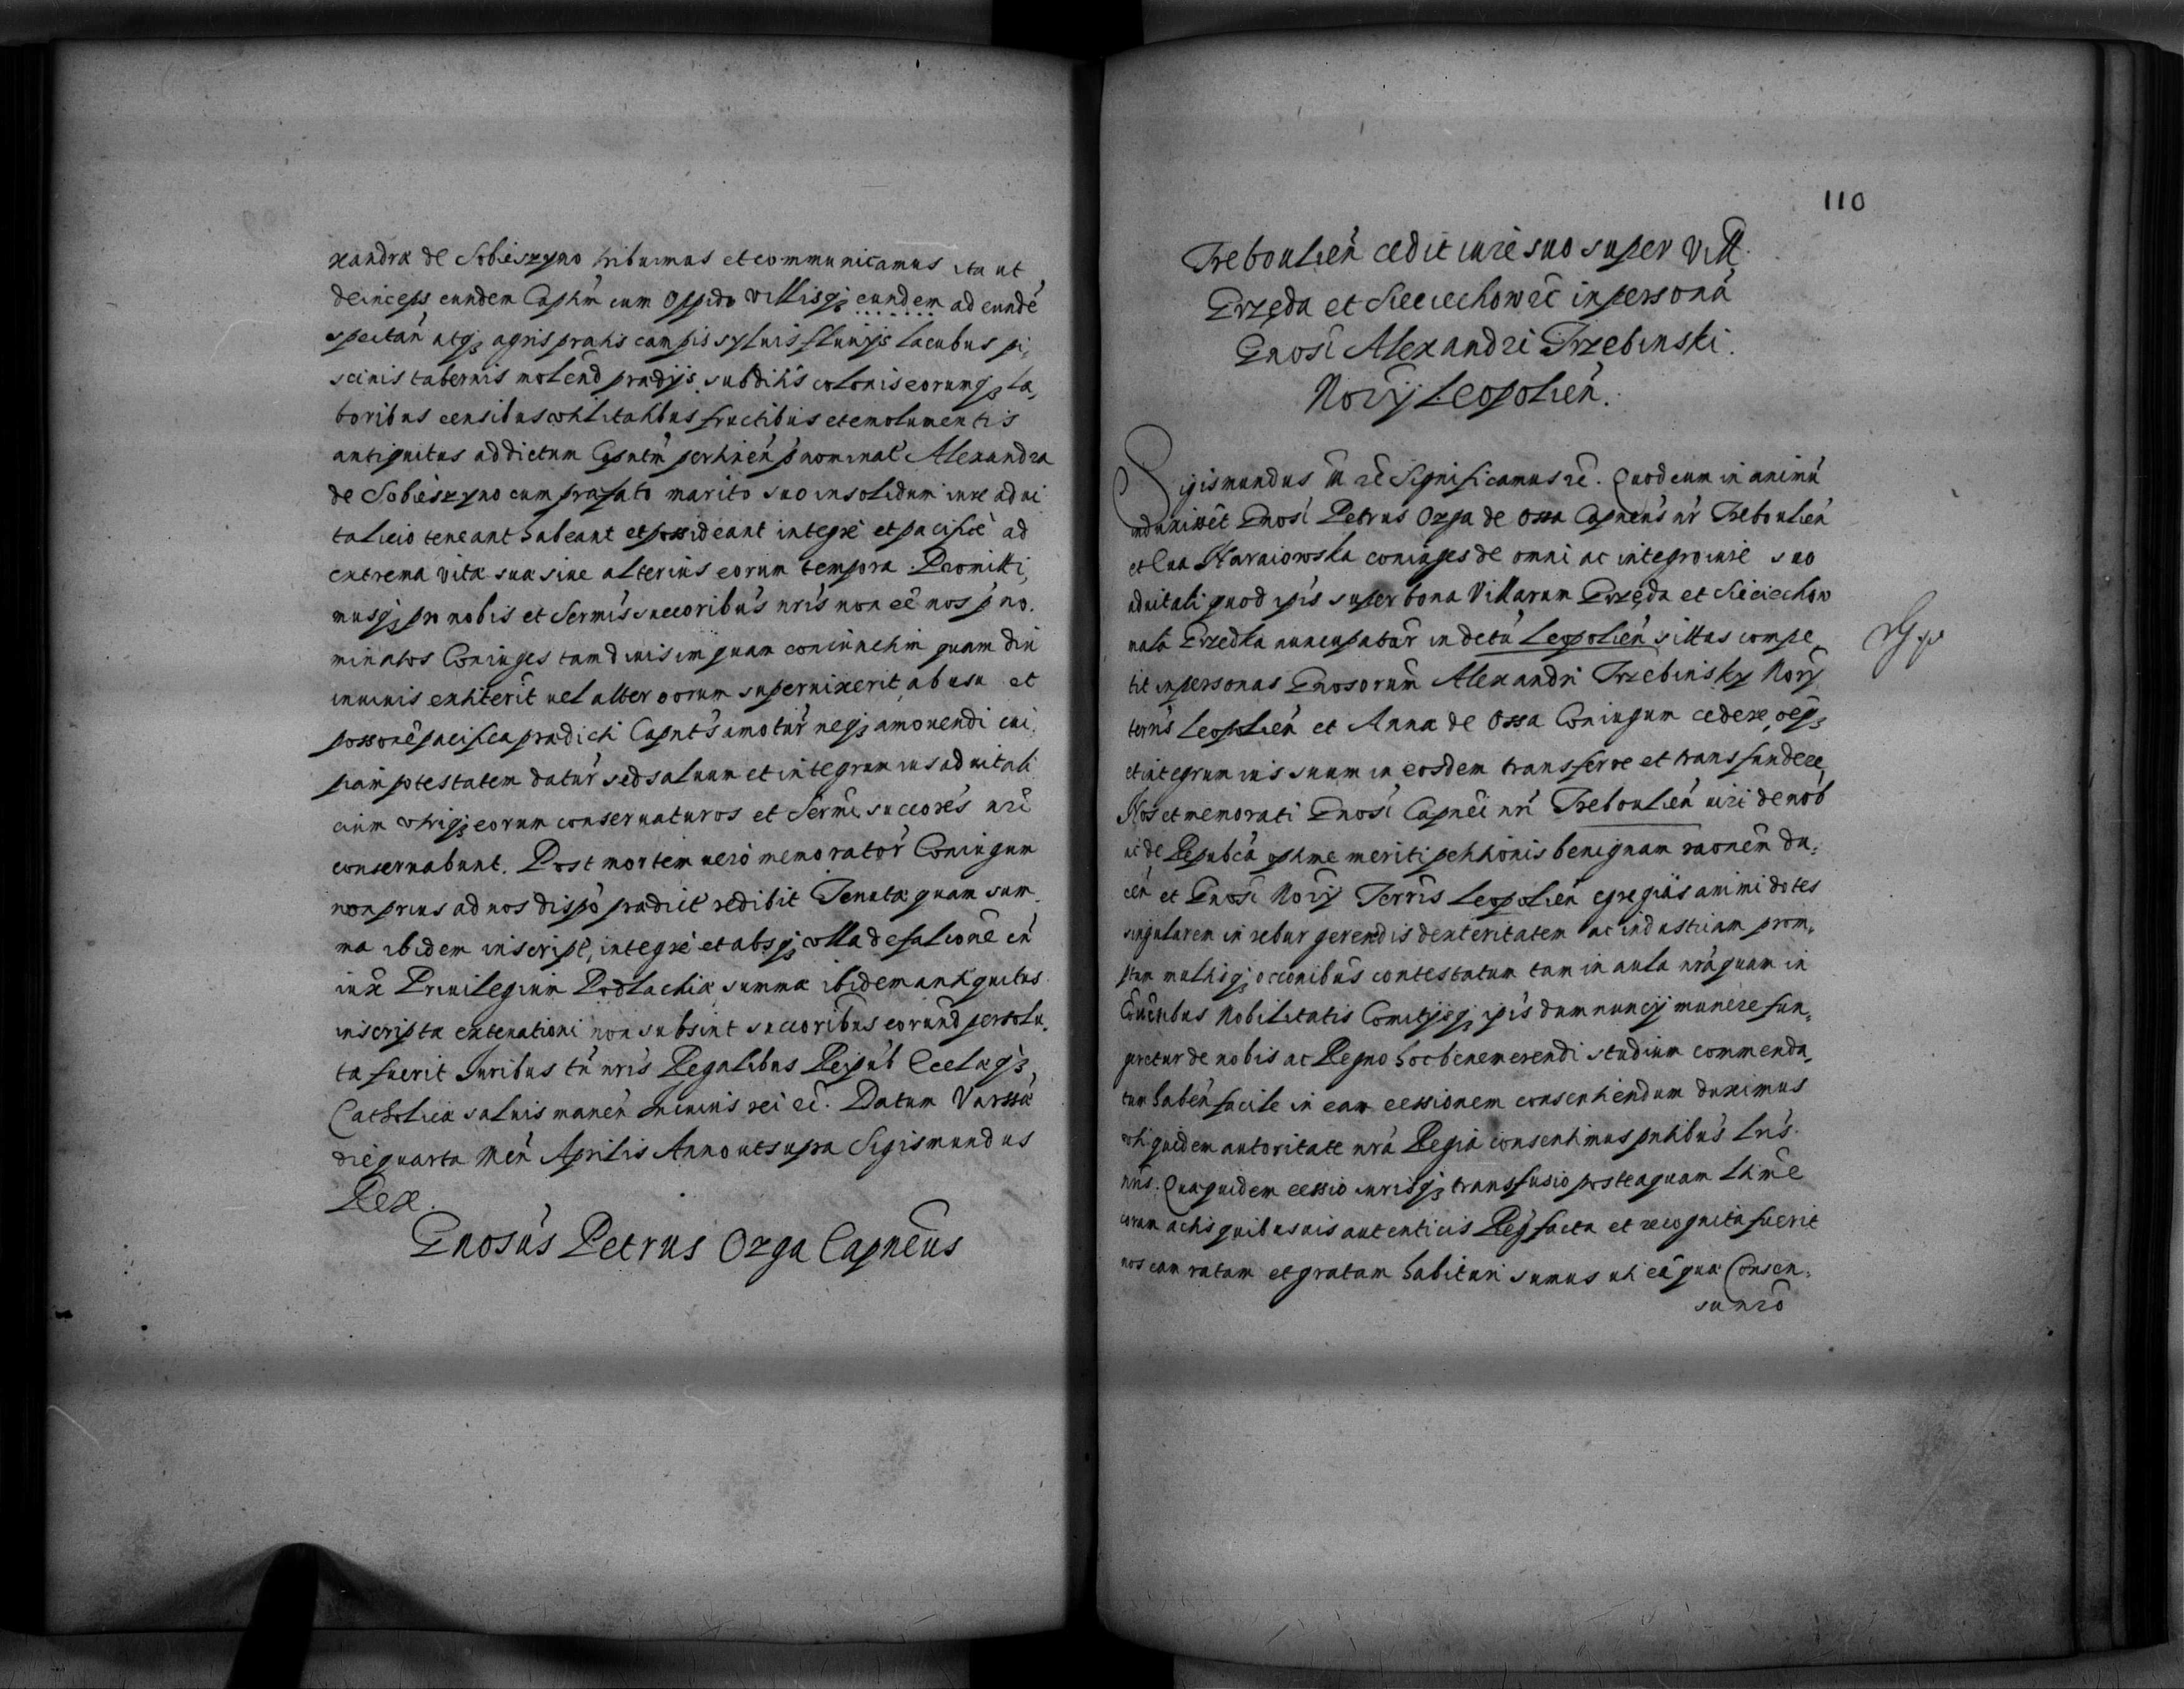 xandræ de Sobieszyno tribuimus et communicamus ita ut
deinceps eundem Capitm̄ cum Oppido Villisqȝ eundem ad eundē
spectan̄ atqȝ agris pratis campis syluis fluuijs lacubus pi,
scinis tabernis molend prædijs subditis colonis eorumqȝ la,
boribus censibus vtilitatibus fructibus et emolumentis
antiquitus ad dictum Capntm̄ pertinen̄ p̄nominat̄ Alexandra
de Sobieszyno cum præfato marito suo in solidum iure adui
talicio teneant habeant et possideant integrè et pacificè ad
extrema vitæ suæ siue alterius eorum tempora. Promitti,
musqȝ pro nobis et Sermis succoribus nris non eē nos p̄no.
minatos Coniuges tam diuisim quam coniunctim quam diu
in viuis extiterit uel alter eorum superuixerit ab usu et
possonē pacifica prædicti Capntus amotur̄ neqȝ amouendi cui,
piam potestatem datur̄ sed saluum et integrum ius aduitali
cium vtriqȝ eorum conseruaturos et Sermi succores nri
conseruabunt. Post mortem uerò memorator̄ Coniugum
non prius ad nos dispo prædict̄ redibit Tenuta quam sum,
ma ibidem inscript, integrè et absqȝ vlla defalcione cū
iuxa Priuilegium Podlachiæ summæ ibidem antiquitus
inscriptæ extenationi non subsint succoribus eorund persolu,
ta fuerit Juribus tn̄ nris Regalibus Reipub Eccl͞æqȝ,
Catholicæ saluis manen̄ In cuius rei ec̄. Datum Varssæ
die quarta Men̄ Aprilis Anno ut supra Sigismundus
Rex.
Gnosus Petrus Ozga Capneus
110
Treboulien̄ cedit iure suo super Vill.
Grzęda et Sieciechow zē in personā
Gnosi Alexandri Trzebinski
Norij Leopolien̄.
Sigismundus III zē Significamus zē. Quod cum in animū
induxisset Gnosi Petrus Ozga de Ossa Capneus nr̄ Treboulien̄
et Eua Naraiowska coniuges de omni ac integro iure suo
aduitali quod ipis super bona Villarum Grzęda et Sieciechow
nata Grzedka nuncupatur in dctu Leopolien̄ sittas compe,
tit in personas Gnosorum Alexandri Trzebinsky Norij
terris Leopolien̄ et Annæ de Ossa Coniugum cedere, oeqȝ
et integrum ius suum in eosdem transferre et transfundere,
Nos et memorati Gnosi Capnei nri Treboulien̄ uiri de nob
ac de Repubcā optime meriti petitionis benignam raonem du,
cen̄ et Gnosi Norij Terris Leopolien̄ egregias animi dotes
singularem in rebus gerendis dexteritatem ac industriam prom,
ptam multisqȝ occonibus contestatum tam in aula nrā quam in
Conuentibus Nobilitatis Comitijsqȝ ipis dum nuncij munere fun,
geretur de nobis ac Regno hoc benemerendi studium commenda,
tum haben̄ facile in eam cessionem consentiendum duximus
vti quidem autoritate nrā Regiā consentimus pntibus Lris
nris. Quæquidem cessio iurisqȝ transfusio posteaquam ltime
coram actis quibusuis autenticis Regȷ facta et recognita fuerit
nos eam ratam et gratam habituri sumus uti eā quæ Consen,
su nrō